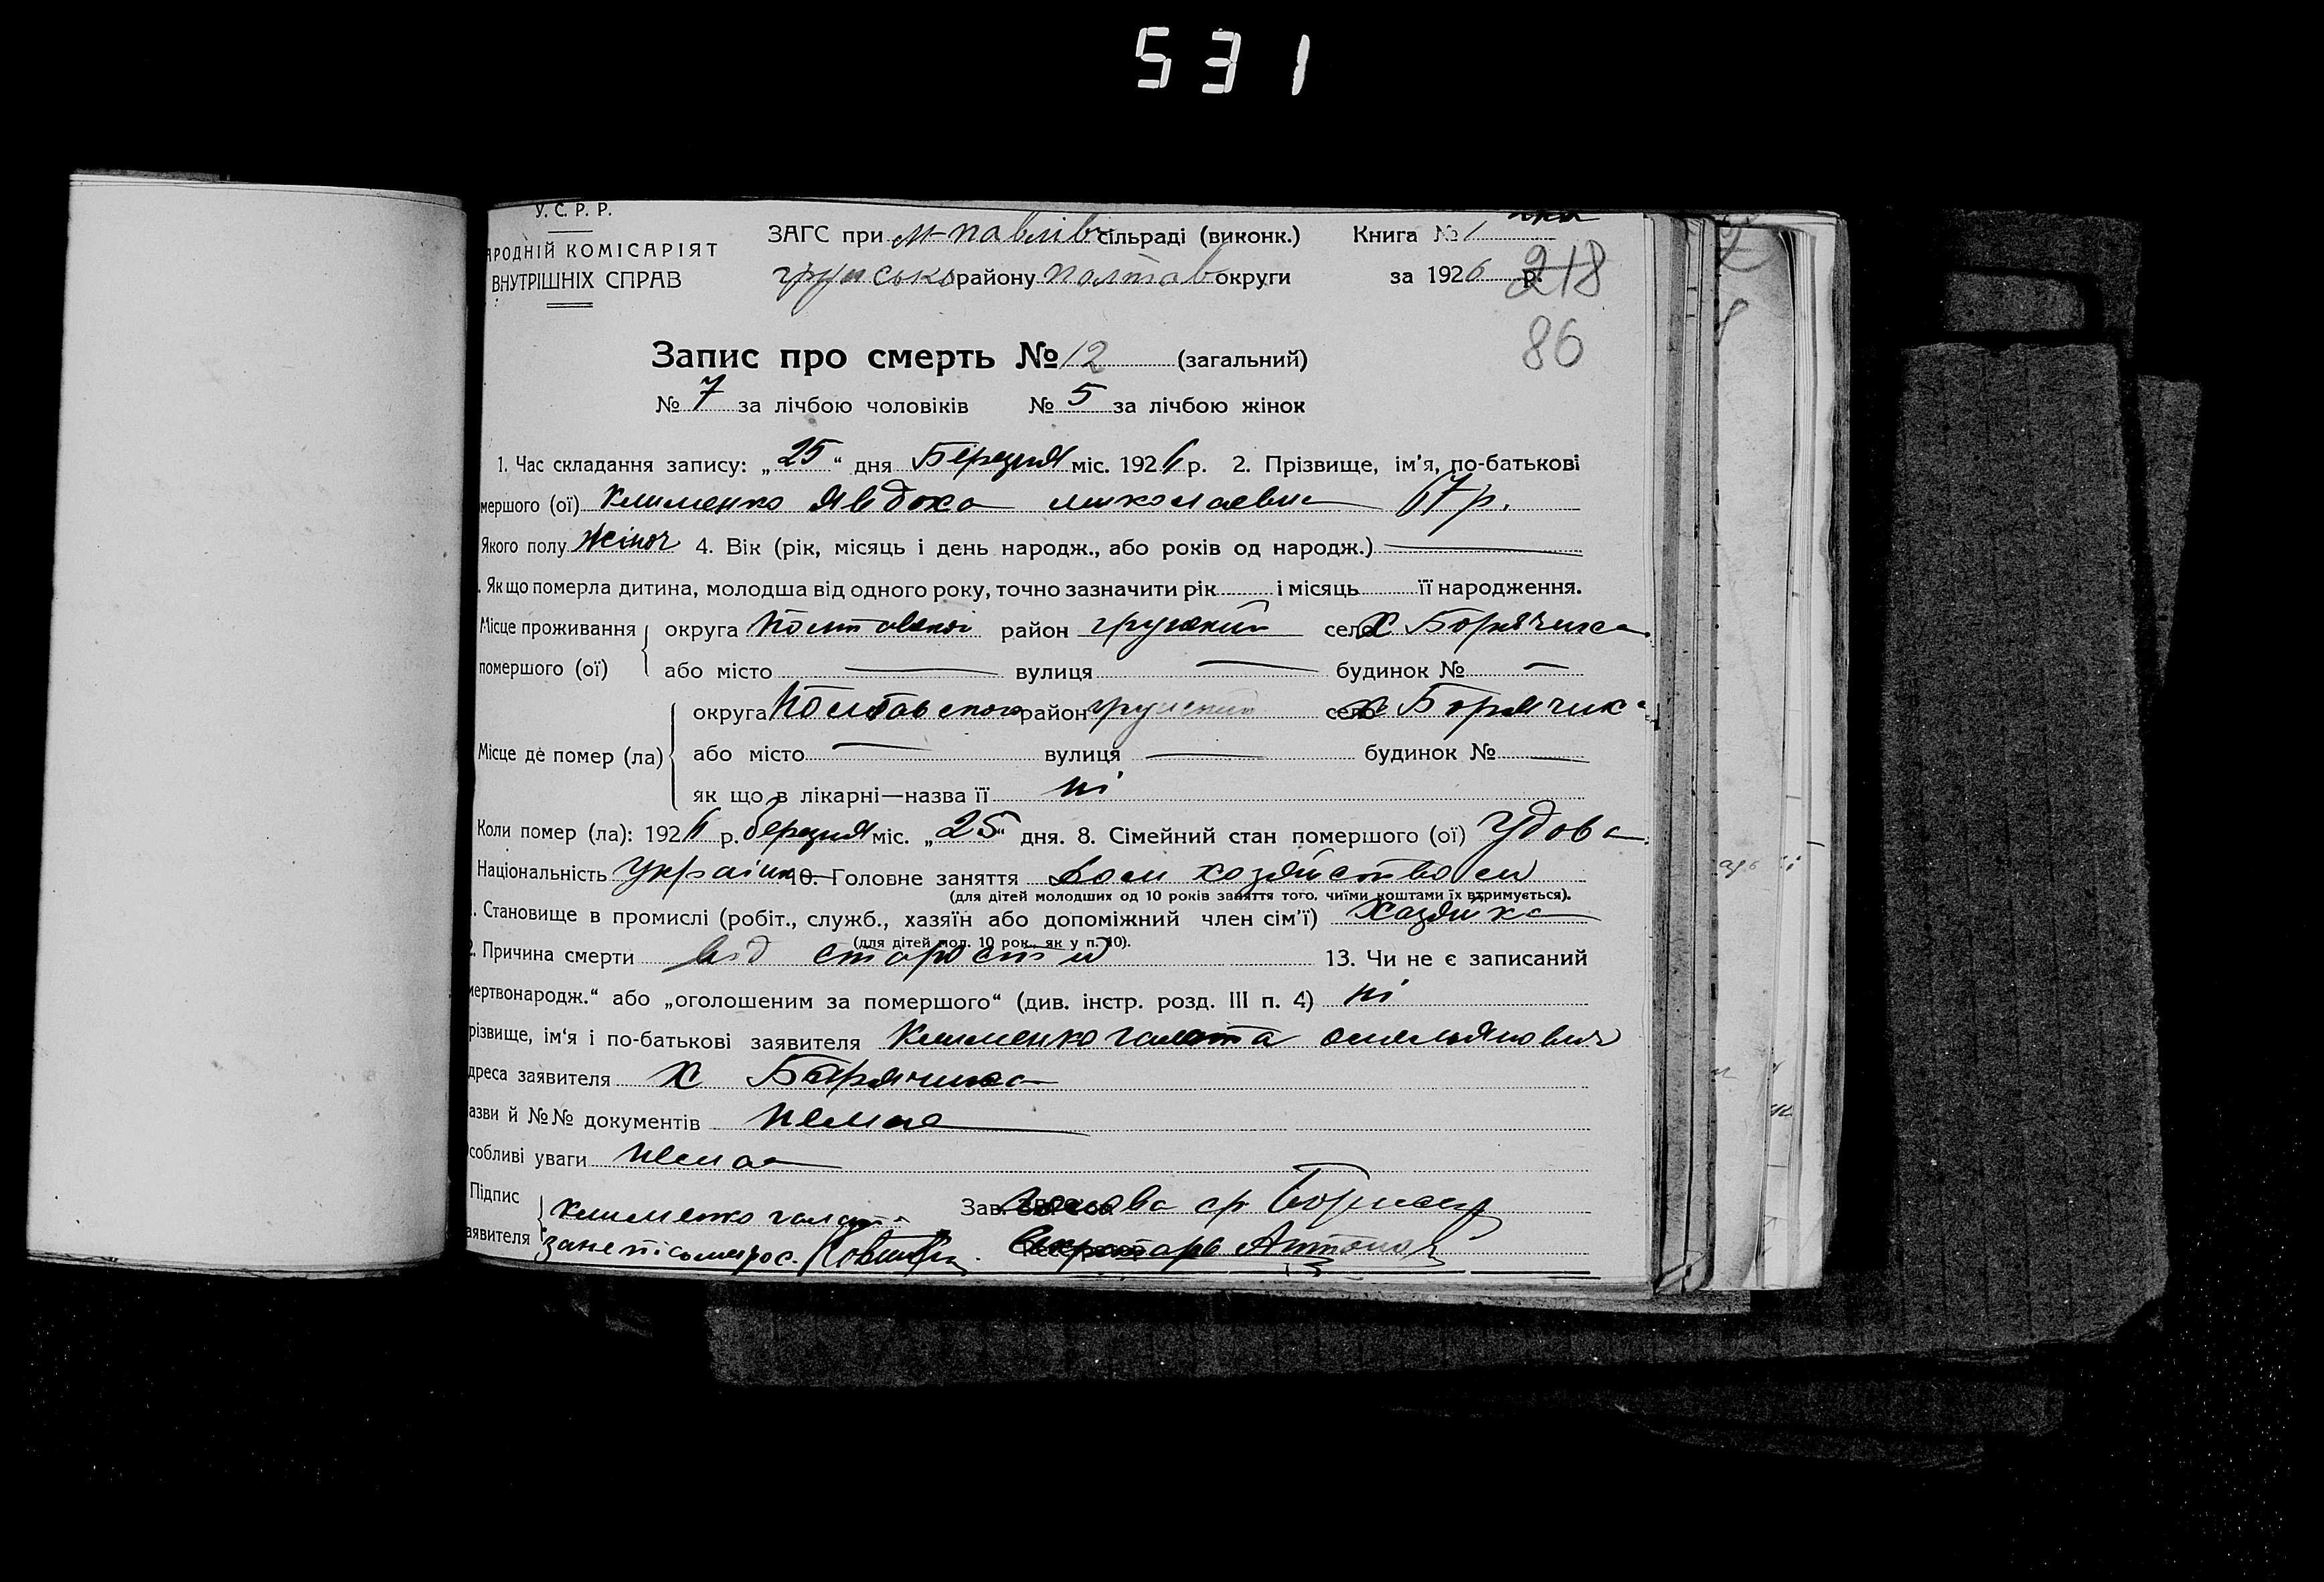 531
У. С. Р. Р.
АРОДНІЙ КОМІСАРІЯТ
ВНУТРІШНІХ СПРАВ
ЗАГС при м-павлівс сільраді (виконк.) Книга № 1
району полтав округи за 1926 р. 218
86
Запис про смерть № 12 (загальний)
№ 7 за лічбою чоловіків № 5 за лічбою жінок
1. Час складання запису: „25“ дня Березня міс. 1926 р. 2. Прізвище, ім'я, по-батькові
мершого (ої) Клименко Явдоха миколаевна 67р.
Якого полу жіноч 4. Вік (рік, місяць і день народж., або років од народж.) —
. Якщо померла дитина, молодша від одного року, точно зазначити рік і місяць її народження.
Місце проживання округа район село Х Борячика
померш​ого (ої) або місто — вулиця — будинок № —
округа район село х Борячик
Місце де помер (ла) або місто — вулиця — будинок № —
як що в лікарні—назва її ні
Коли помер (ла): 1926 р. березня міс. „25“ дня. 8. Сімейний стан помершого (ої) Удова
Національність україінк 10. Головне заняття хозяйством
(для дітей молодших од 10 років заняття того, чиїми коштами їх втримується).
. Становище в промислі (робіт., служб., хазяїн або допоміжний член сім'ї) хазяйка
(для дітей мол. 10 рок., як у п. 10).
2. Причина смерти від старости 13. Чи не є записаний
мертвонародж.“ або „оголошеним за помершого“ (див. інстр. розд. III п. 4) ні
різвище, ім'я і по-батькові заявителя Клименко омелянович
дреса заявителя х Борячика
азви й №№ документів немае
собливі уваги немае
Підпис Клименко Зав. голова ср
аявителя секретарь Антоно